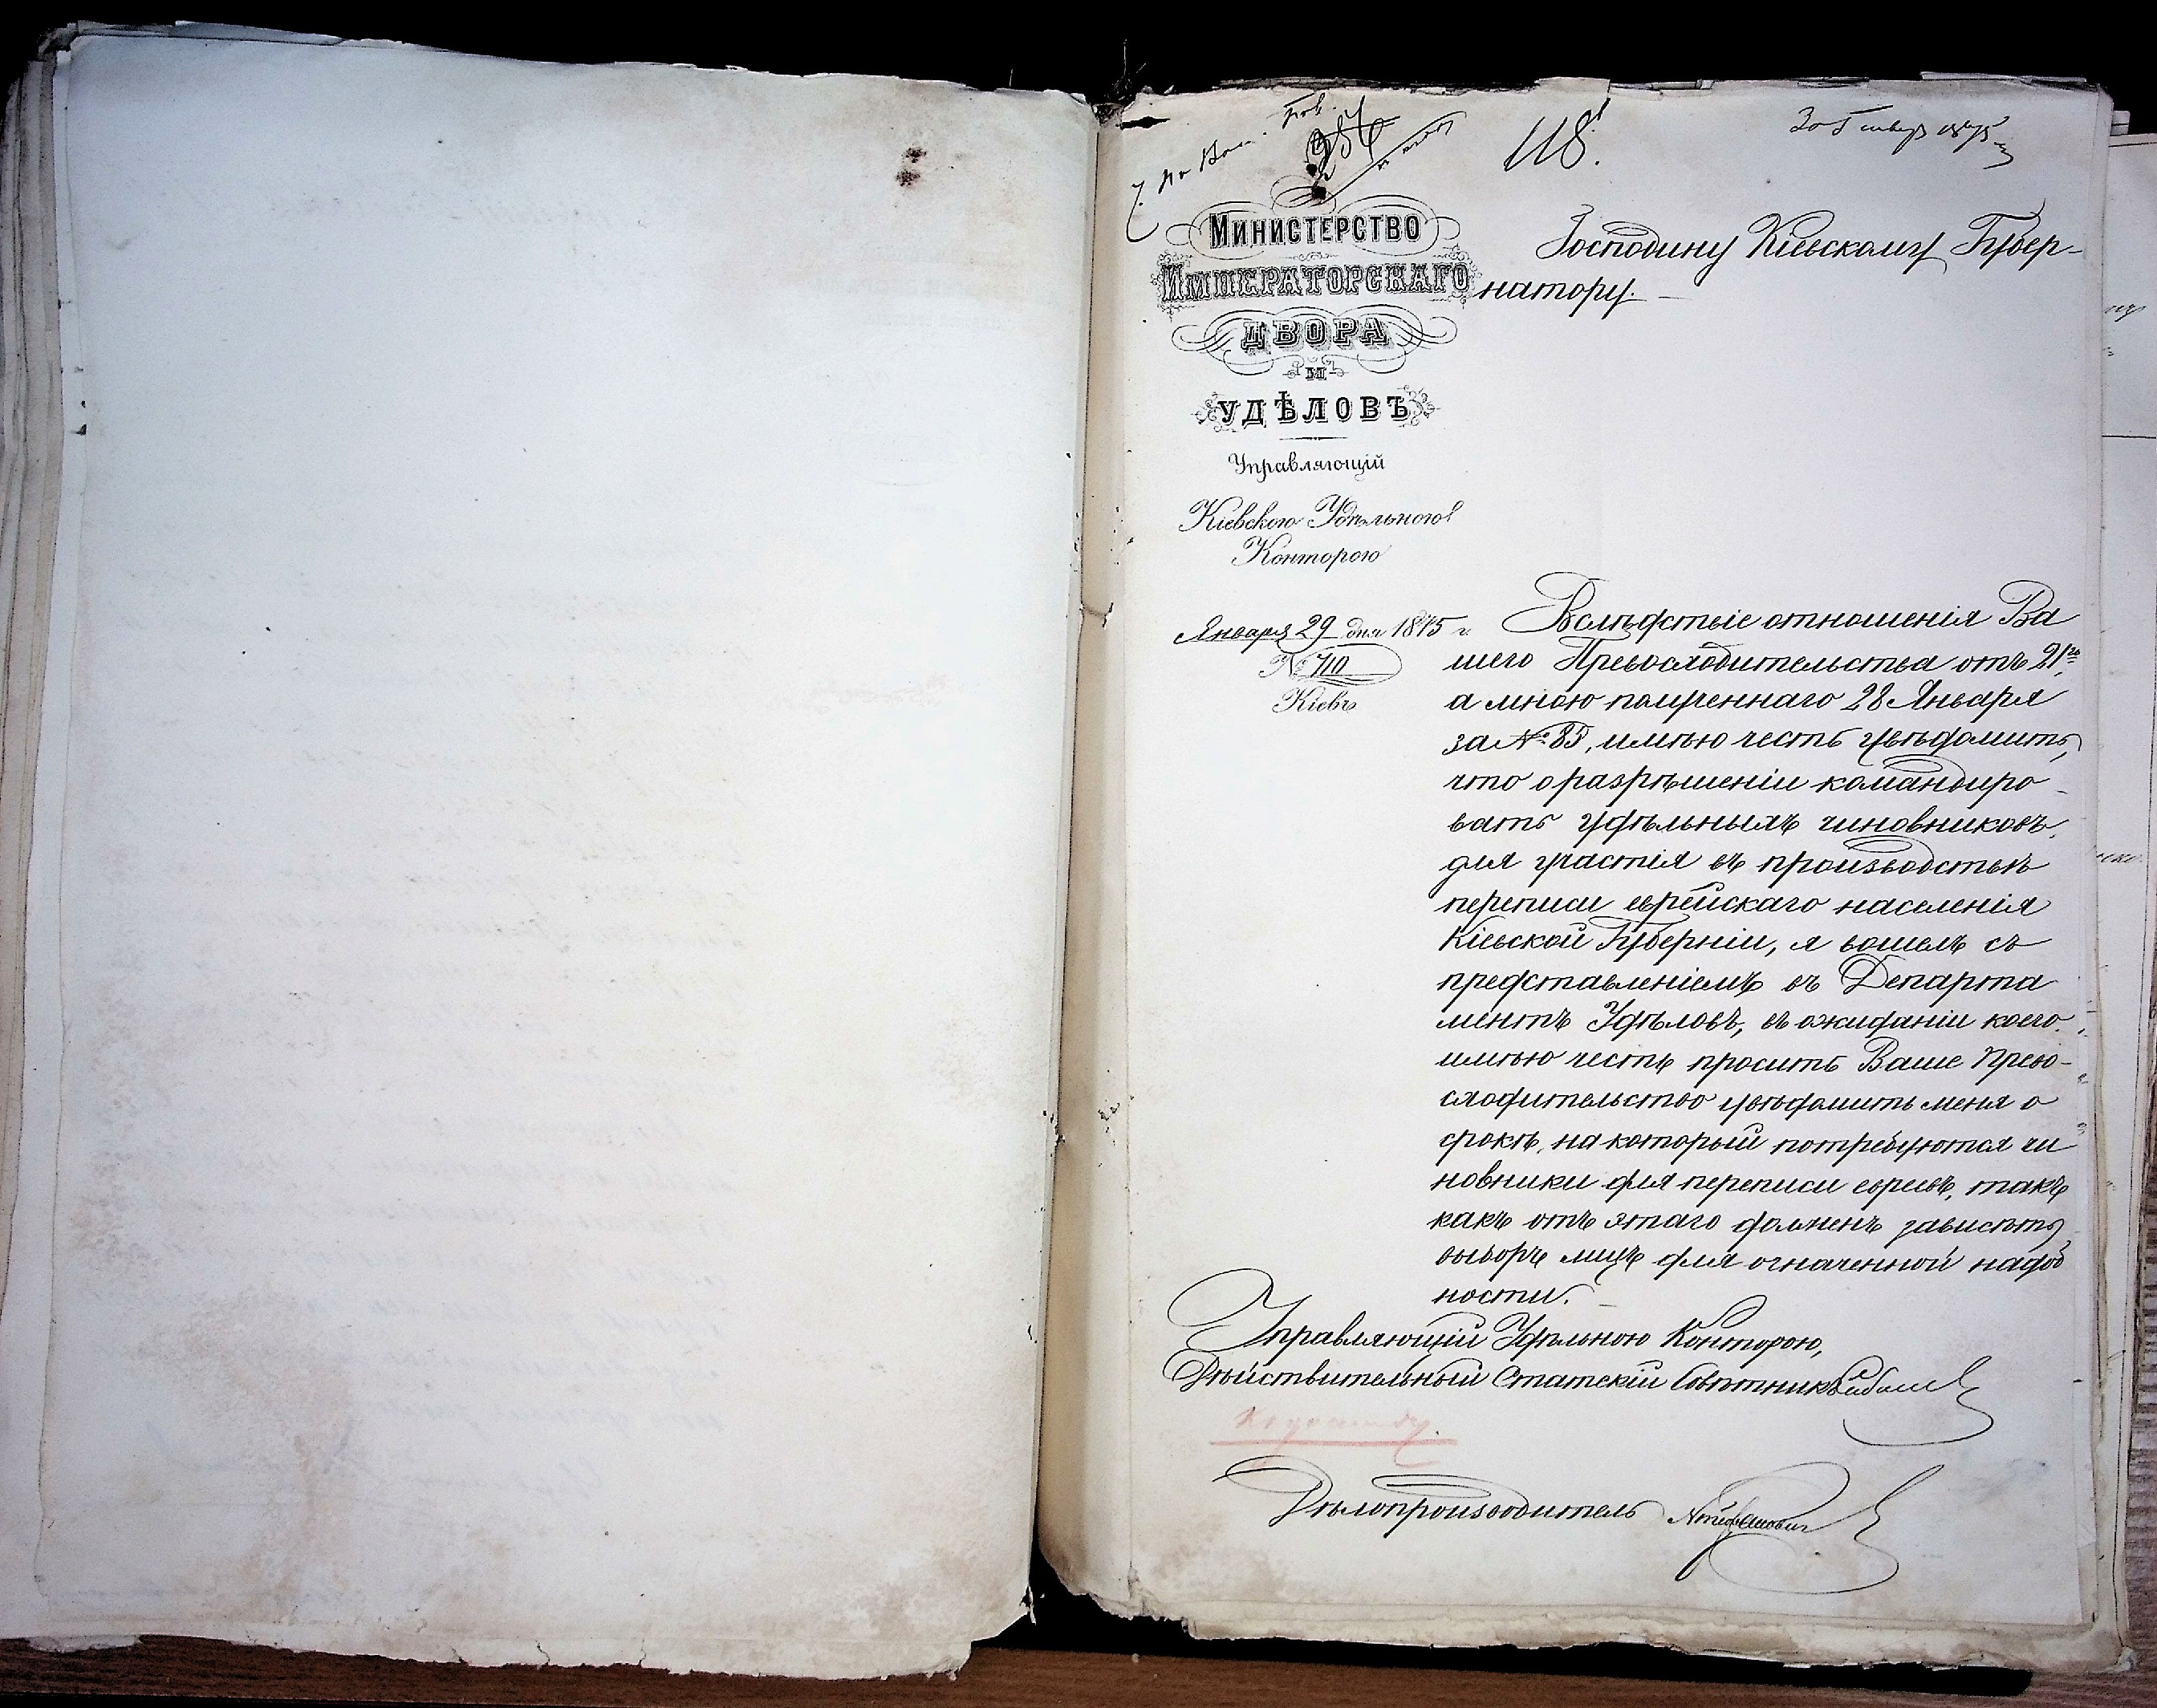 118.
30 Января 1875
Министерство
Императорскаго
Двора
и
Удѣловъ
Управляющій
Кіевскою Удѣльною
Конторою
Января 29 дня 1875 г.
№ 710
Кіевъ
Господину Кіевскому Губер-
натору.
Вслѣдствіе отношенія Ва
шего Превосходительства отъ 21го
а мною полученнаго 28 Января
за № 85, имѣю честь увѣдомить,
что о разрѣшеніи командиро
вать удѣльныхъ чиновниковъ
для участія въ производствѣ
переписи еврейскаго населенія
Кіевской Губерніи, я вошелъ съ
представленіемъ въ Департа
ментъ Удѣловъ, въ ожиданіи коего
имѣю честь просить Ваше Прево-
сходительство увѣдомить меня о
срокѣ, на который потребуются чи
новники для переписи евреевъ, такъ
какъ отъ этаго долженъ зависѣть
выборъ лицъ для означенной надоб
ности.
Управляющій Удѣльною Конторою,
Дѣйствительный Статскій Совѣтникъ
Дѣлопроизводитель